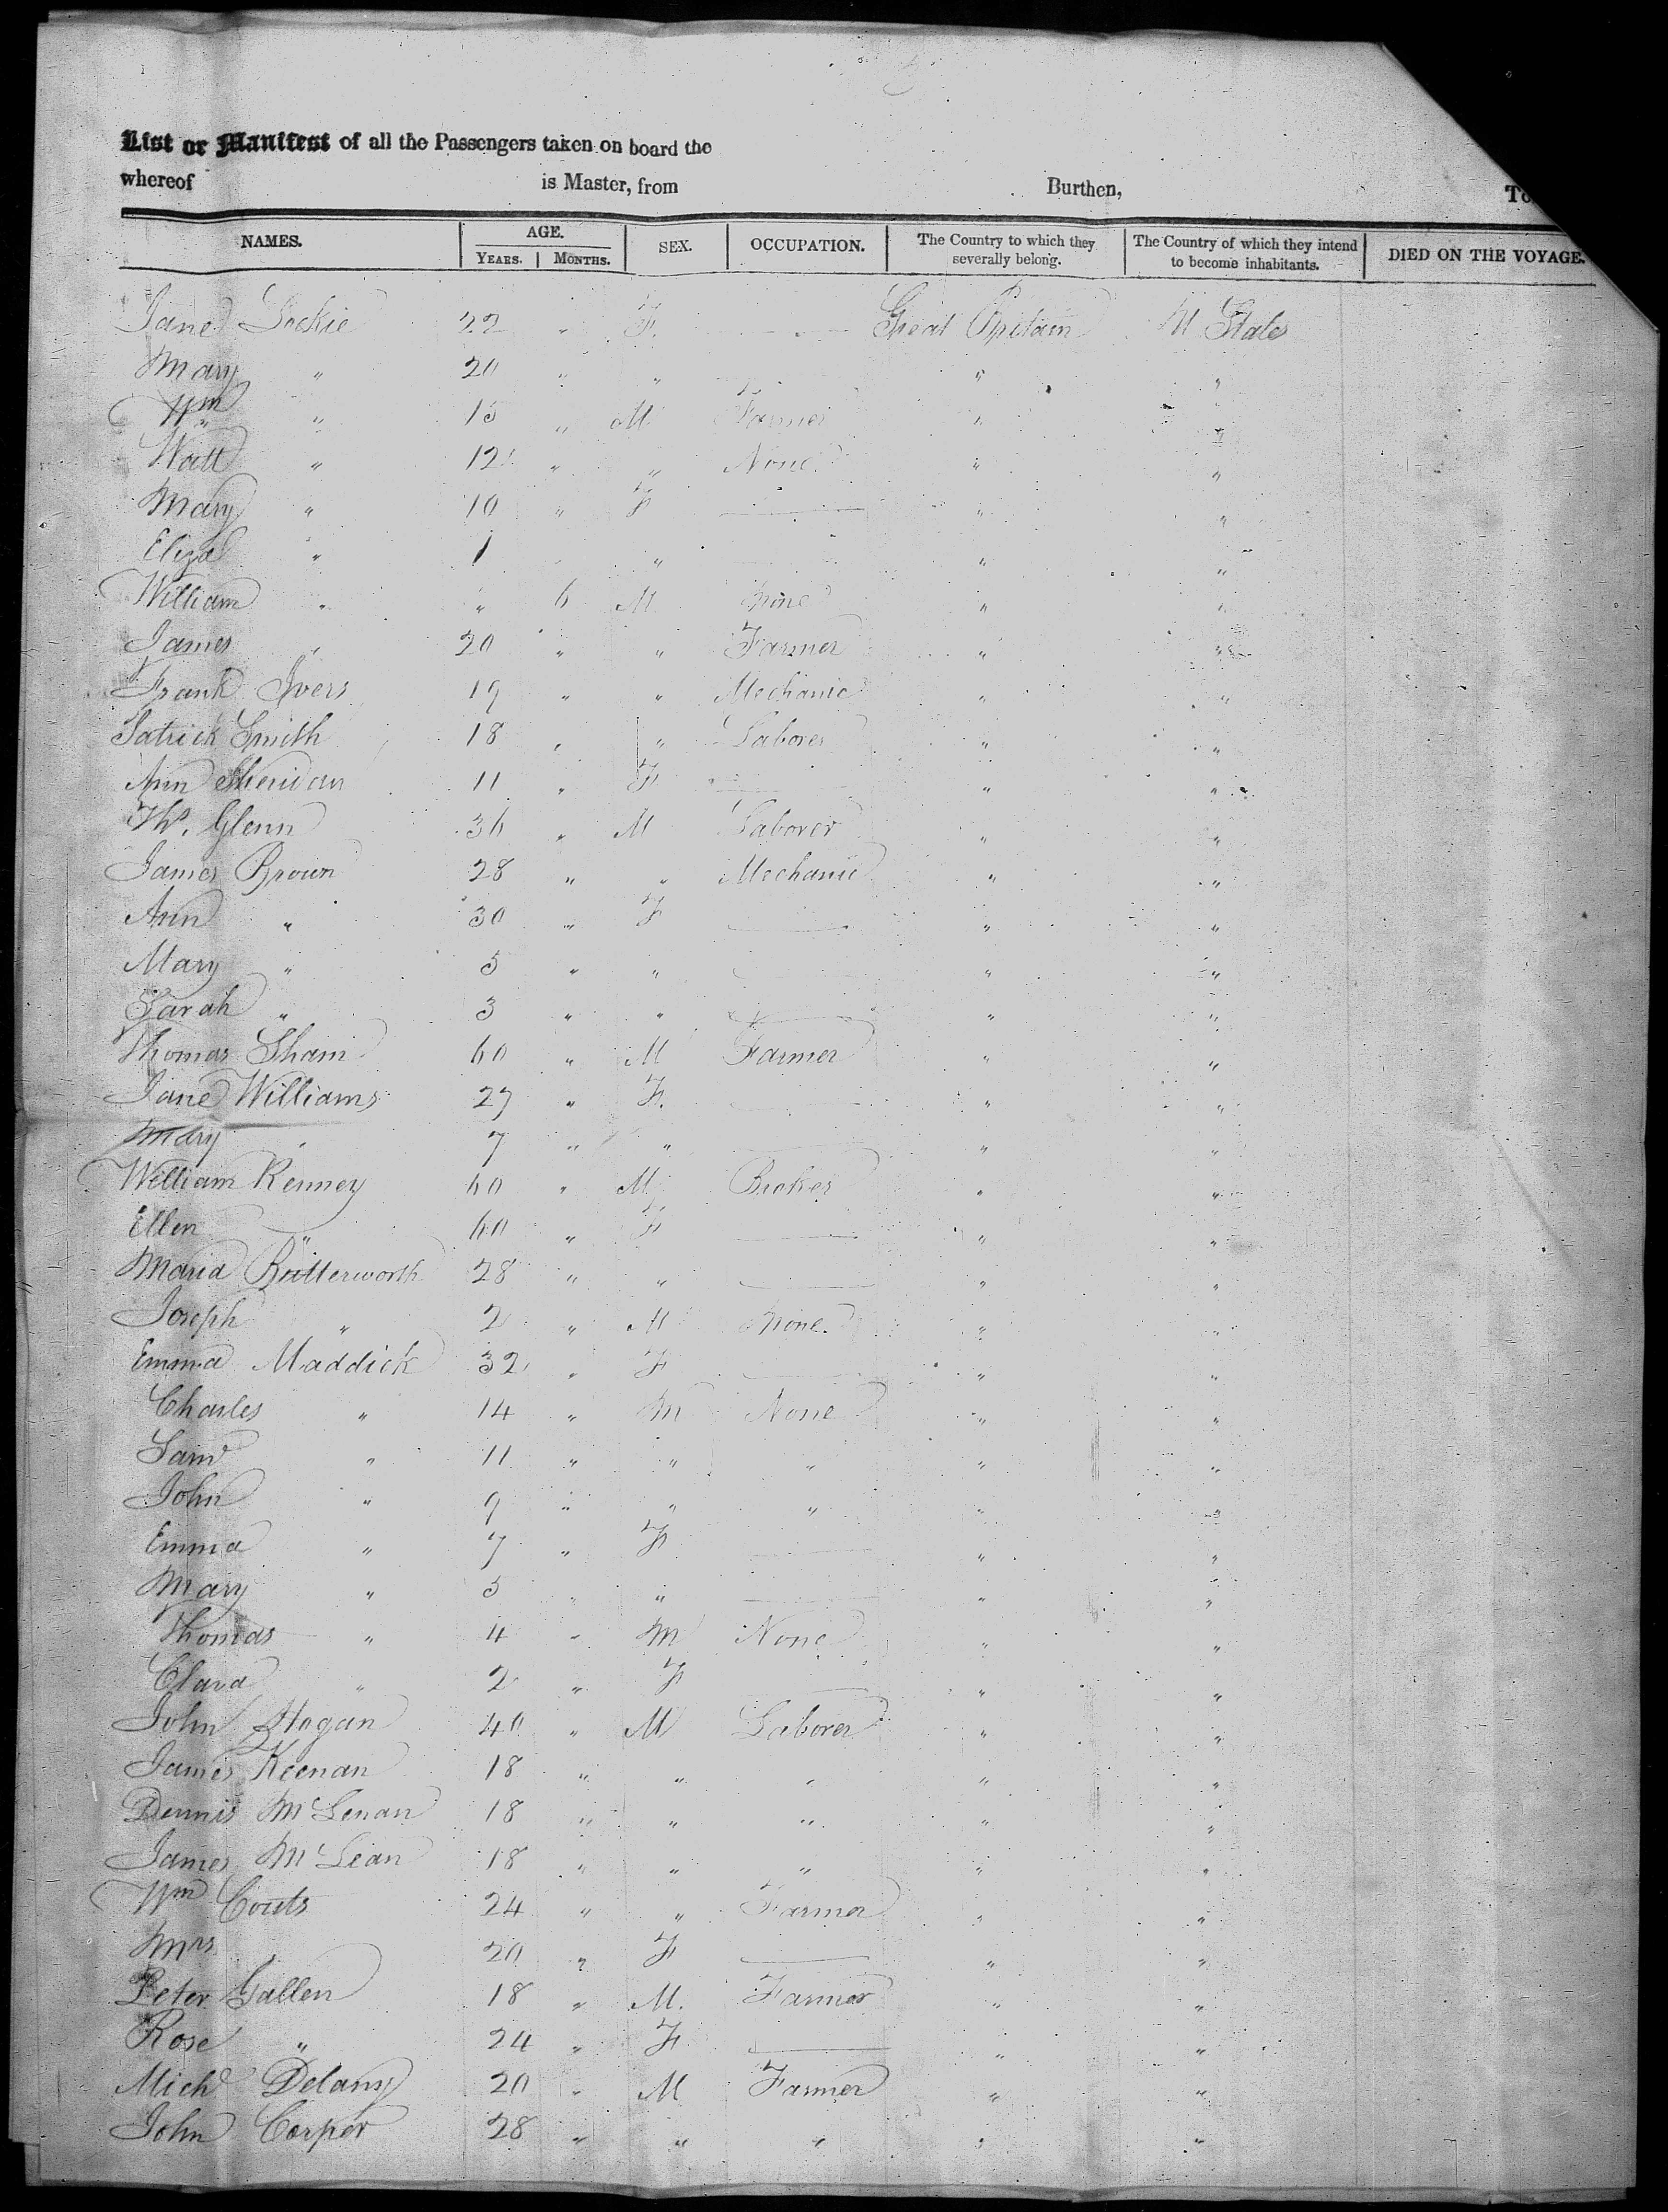 List or Manifest of all the Passengers taken on board the
whereof is Master, from Burthen, To
NAMES. AGE. YEARS. MONTHS. SEX. OCCUPATION. The Country to which they severally belong. The Country of which they intend to become inhabitants. DIED ON THE VOYAGE.
Jane Lockie 22 " F. — Great Britain U States
Mary " 20 " " " "
Wm " 15 " M Farmer " "
Watt " 12 " " None " "
Mary " 10 " F — " "
Eliza " 1 " " — " "
William " " 6 M None " "
James " 20 " " Farmer " "
Frank Ivers 19 " " Mechanic " "
Patrick Smith 18 " " Laborer " "
Ann Sheridan 11 " F — " "
Ths. Glenn 36 " M Laborer " "
James Brown 28 " " Mechanic " "
Ann " 30 " F — " "
Mary " 5 " " — " "
Sarah " 3 " " — " "
Thomas 60 " M Farmer " "
Jane Williams 27 " F. — " "
Mary " 7 " " — " "
William Kenney 60 " M Broker " "
Ellen " 60 " F — " "
Maria Butterworth 28 " " — " "
Joseph " 2 " M None. " "
Emma Maddick 32 " F — " "
Charles " 14 " M None " "
Saml " 11 " " " " "
John " 9 " " " " "
Emma " 7 " F — " "
Mary " 5 " " — " "
Thomas " 4 " M None " "
Clara " 2 " F — " "
John Hogan 40 " M Laborer " "
James Keenan 18 " " " " "
Dennis McLenan 18 " " " " "
James McLean 18 " " " " "
Wm Couts 24 " " Farmer " "
Mrs 20 " F — " "
Peter Gallen 18 " M. Farmer " "
Rose " 24 " F — " "
Michl Delany 20 " M Farmer " "
John Corper 28 " " " " "